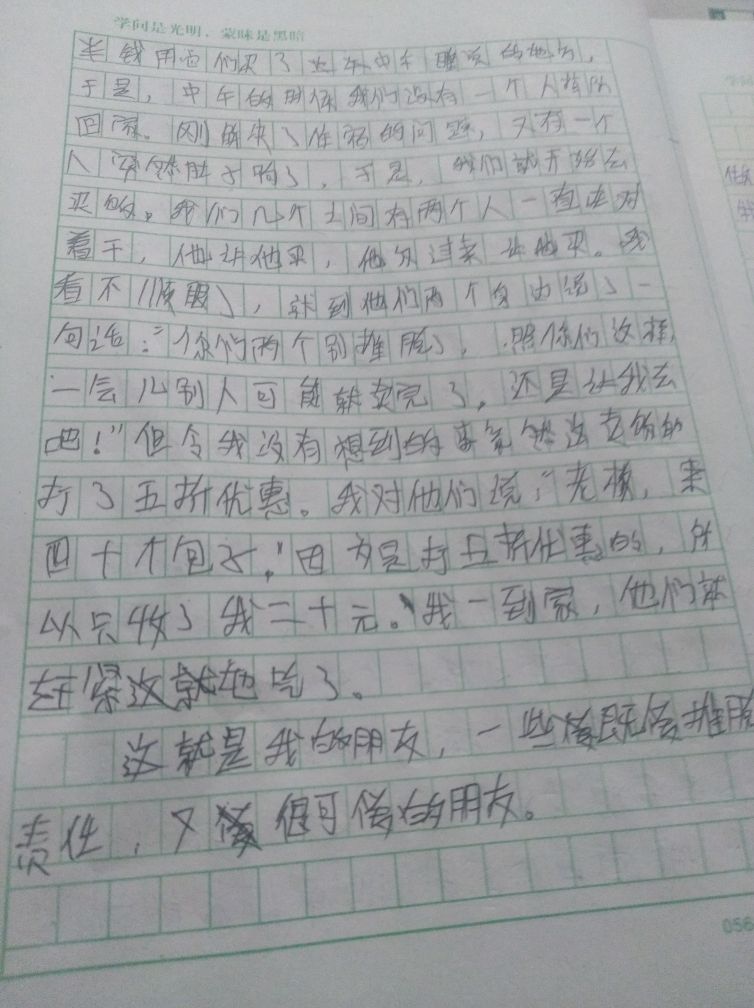 学问是光明，蒙昧是黑暗
半钱用 们买了 中午睡觉的地方，
于是，中午的时候我们没有一个人
回家。刚解决了 的问题，又有一个
人突然肚子响了，于是，我们就开始去
买 。我们几个之间有两个人一直 对
着干，他让他买，他 让他买。我
看不顺眼了，就到他们两个身边说了一
句话：“你们两个别推脱了，照你们这样，
一会儿别人可能就卖完了，还是让我去
吧！”但令我没有想到的 的
打了五折优惠。我对他们说：“老板，来
四十个包子。”因为是打五折优惠的，所
以只收了我二十元。我一到家，他们就
赶紧 吃了。
这就是我的朋友，一些 既 推脱
责任，又 很可 的朋友。
056